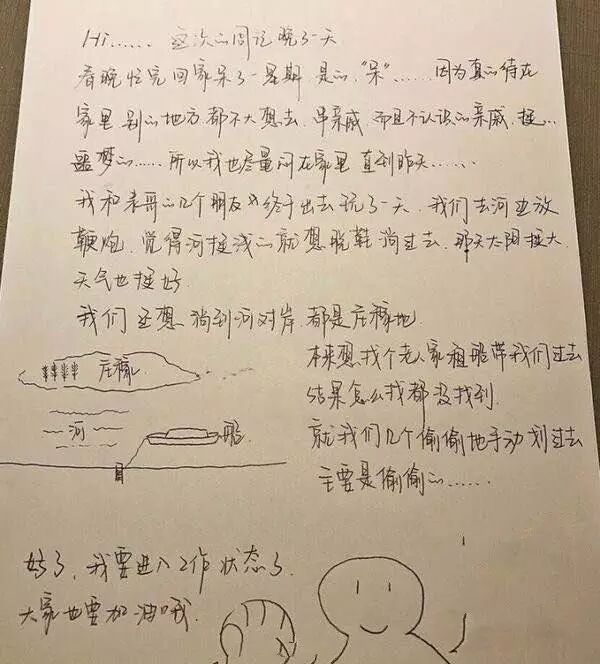 Hi...... 这次的周记晚了一天
春晚忙完回家呆了一星期 是的,“呆”...... 因为真的待在
家里 别的地方都不大想去, 串亲戚, 而且不认识的亲戚, 挺...
噩梦的...... 所以我也尽量闷在家里 直到昨天......
我和表哥的几个朋友终于出去玩了一天. 我们去河边放
鞭炮. 觉得河挺浅的就想脱鞋淌过去. 那天太阳挺大
天气也挺好.
我们还想淌到河对岸. 都是庄稼地.
庄稼
本来想找个老人家租船带我们过去
结果怎么找都没找到.
河
船
就我们几个偷偷地手动划过去
主要是偷偷的......
好了, 我要进入工作状态了.
大家也要加油哦.